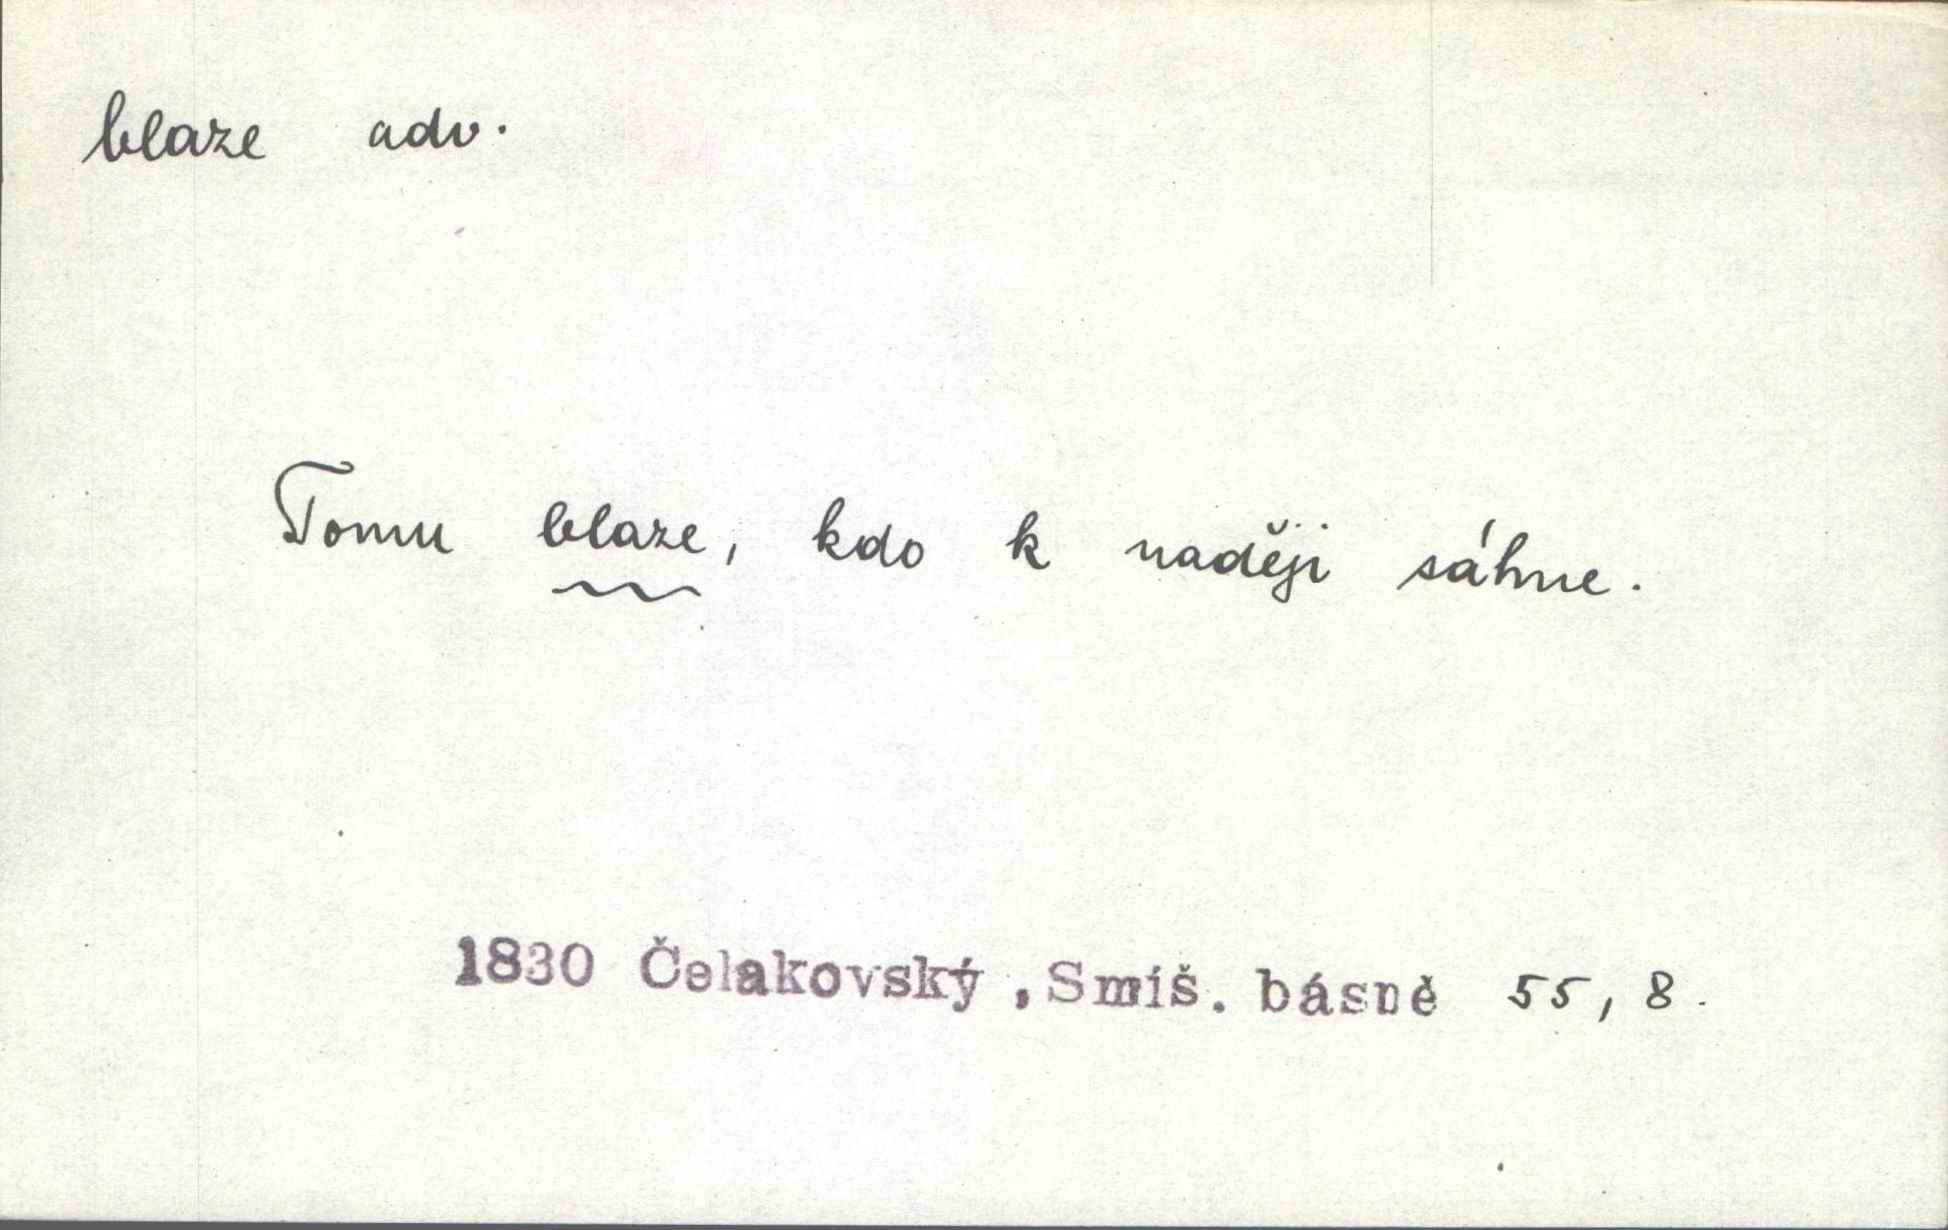 blaze adv.
Tomu blaze, kdo k naději sáhne.
1830 Čelakovský, Smíš. básně 55, 8.